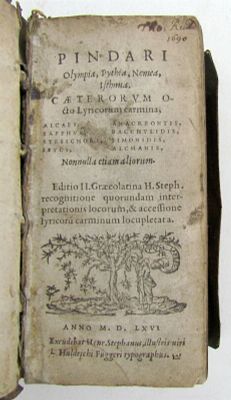 1690
PINDARI
Olympia, Pythia, Nemea,
Isthmia.
CÆTERORVM O-
cto Lyricorum carmina,
ALCAEI, ANACREONTIS,
SAPPHVS, BACCHYLIDIS,
STESICHORI, SIMONIDIS,
IBYCI, ALCMANIS,
Nonnulla etiam aliorum.
Editio II. Græcolatina H. Steph.
recognitione quorundam inter-
pretationis locorum, & accessione
lyricorũ carminum locupletata.
ANNO M. D. LXVI
Excudebat Henr. Stephanus, illustris viri
Huldrichi Fuggeri typographus.